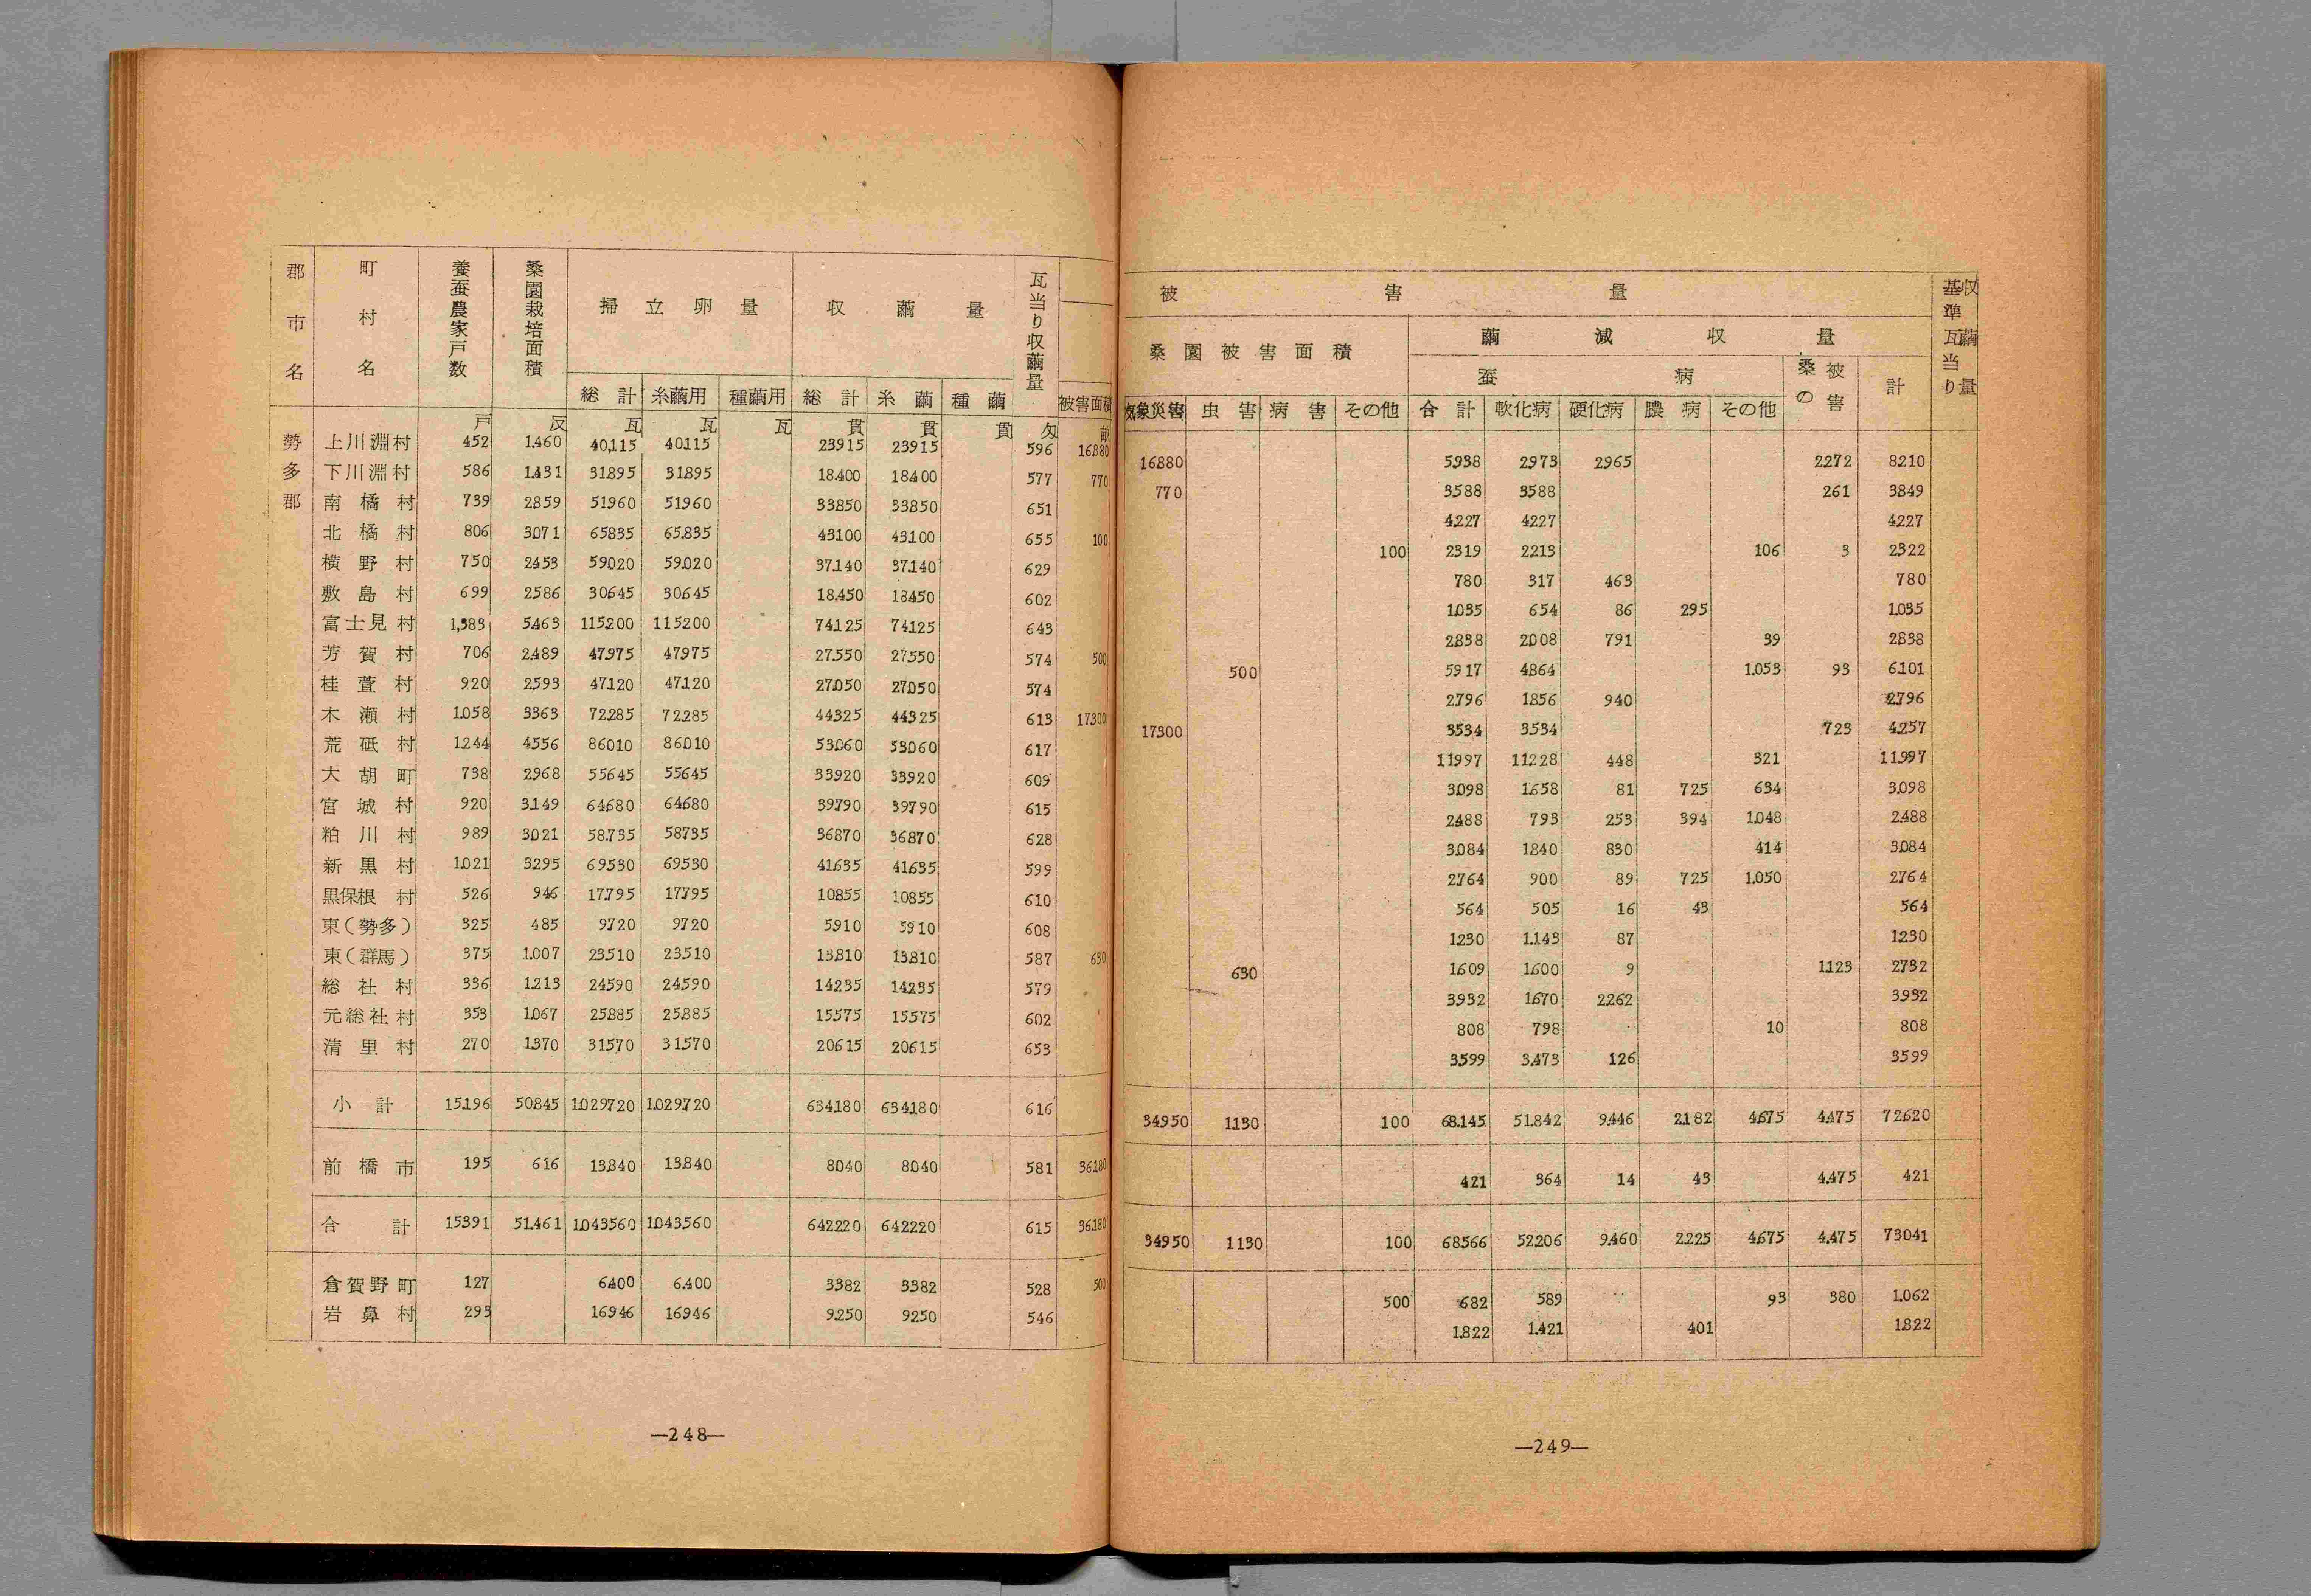 郡市名 町村名 養蚕農家戸数 桑園栽培面積 掃立卵量 収繭量 瓦当り収繭量
総計 糸繭用 種繭用 総計 糸繭 種繭 被害面積
戸 反 瓦 瓦 瓦 貫 貫 貫 匁 畝
勢多郡
上川淵村 452 1.460 40.115 40.115 23.915 23.915 596 16.880
下川淵村 586 1.431 31.895 31.895 18.400 18.400 577 770
南橘村 739 2.859 51.960 51.960 33.850 33.850 651
北橘村 806 3.071 65.835 65.835 43.100 43.100 655 100
横野村 750 2.453 59.020 59.020 37.140 37.140 629
敷島村 699 2.586 30.645 30.645 18.450 18.450 602
富士見村 1,383 5.463 115.200 115.200 74.125 74.125 643
芳賀村 706 2.489 47.975 47.975 27.550 27.550 574 500
桂萱村 920 2.593 47.120 47.120 27.050 27.050 574
木瀬村 1.058 3.363 72.285 72.285 44.325 44.325 613 17.300
荒砥村 1.244 4.556 86.010 86.010 53.060 53.060 617
大胡町 738 2.968 55.645 55.645 33.920 33.920 609
宮城村 920 3.149 64.680 64.680 39.790 39.790 615
粕川村 989 3.021 58.735 58.735 36.870 36.870 628
新黒村 1.021 3.295 69.530 69.530 41.635 41.635 599
黒保根村 526 946 17.795 17.795 10.855 10.855 610
東(勢多) 325 485 9.720 9.720 5.910 5.910 608
東(群馬) 375 1.007 23.510 23.510 13.810 13.810 587 630
総社村 336 1.213 24.590 24.590 14.235 14.235 579
元総社村 353 1.067 25.885 25.885 15.575 15.575 602
清里村 270 1.370 31.570 31.570 20.615 20.615 653
小計 15.196 50.845 1.029.720 1.029.720 634.180 634.180 616
前橋市 195 616 13.840 13.840 8.040 8.040 581 36.180
合計 15.391 51.461 1.043.560 1.043.560 642.220 642.220 615 36.180
倉賀野町 127 6.400 6.400 3.382 3.382 528 500
岩鼻村 293 16.946 16.946 9.250 9.250 546
—248—
被害量 基準瓦当り収繭量
桑園被害面積 繭減収量
蚕病 桑の被害 計
気象災害 虫害 病害 その他 合計 軟化病 硬化病 膿病 その他
16.880 5.938 2.973 2.965 2.272 8.210
770 3.588 3.588 261 3.849
4.227 4.227 4.227
100 2.319 2.213 106 3 2.322
780 317 463 780
1.035 654 86 295 1.035
2.838 2.008 791 39 2.838
500 5.917 4.864 1.053 93 6.101
2.796 1.856 940 2.796
17.300 3.534 3.534 723 4.257
11.997 11.228 448 321 11.997
3.098 1.658 81 725 634 3.098
2.488 793 253 394 1.048 2.488
3.084 1.840 830 414 3.084
2.764 900 89 725 1.050 2.764
564 505 16 43 564
1.230 1.143 87 1.230
630 1.609 1.600 9 1.123 2.732
3.932 1.670 2.262 3.932
808 798 10 808
3.599 3.473 126 3.599
34.950 1.130 100 68.145 51.842 9.446 2.182 4.675 4.475 72.620
421 364 14 43 4.475 421
34.950 1.130 100 68.566 52.206 9.460 2.225 4.675 4.475 73.041
500 682 589 93 380 1.062
1.822 1.421 401 1.822
—249—